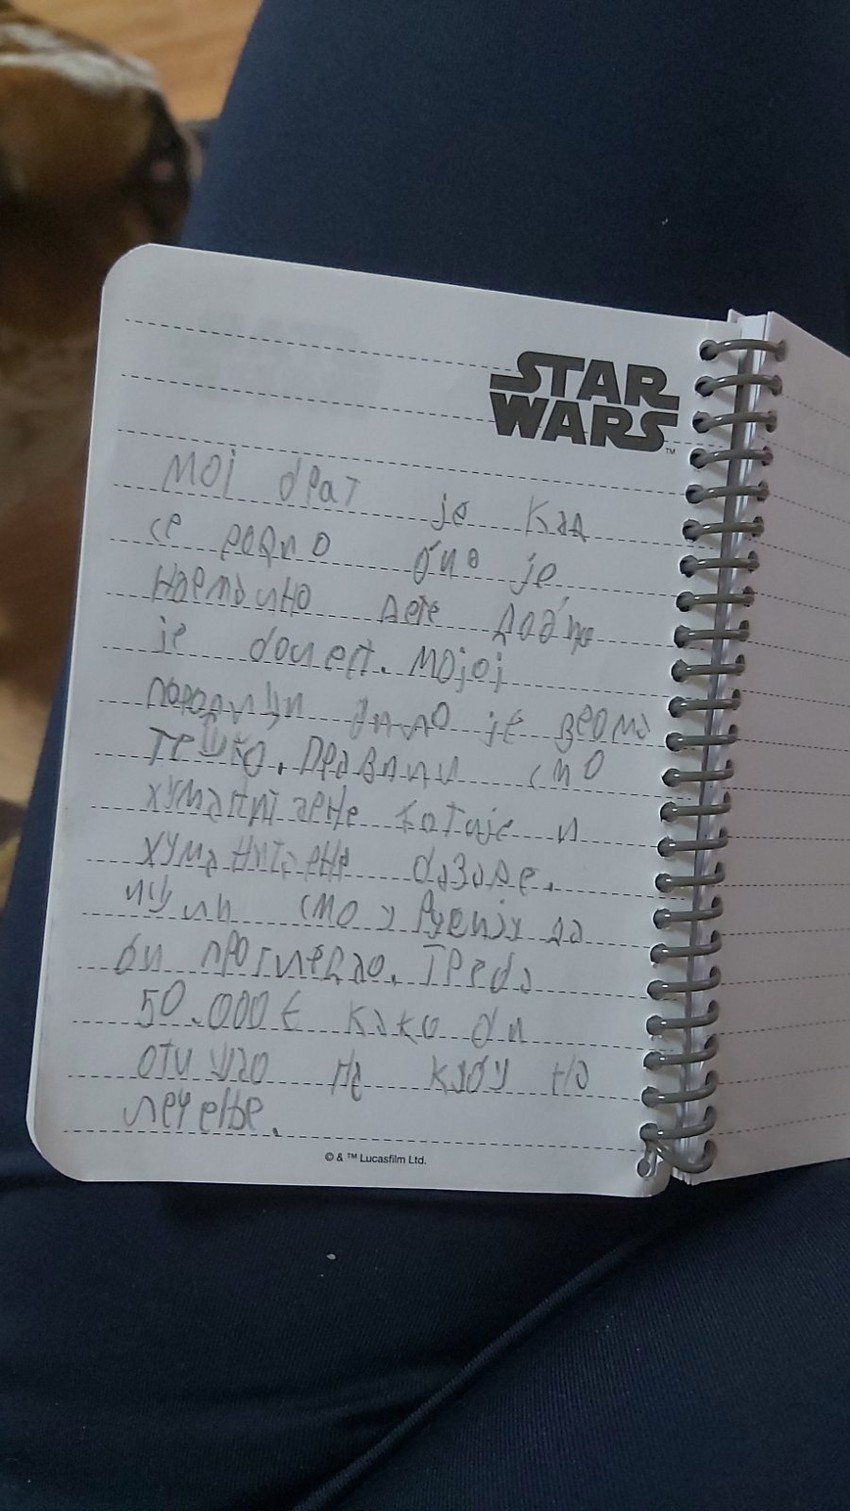 STAR
WARS™
Мој брат је кад
се родио био је
нормално дете добио
је болест. Мојој
породици било је веома
тешко. Правили смо
хуманитарне
хуманитарне базаре.
смо у да
би прогледао. Треба
50.000 € како би
отишао на Кубу на
лечење.
© & ™ Lucasfilm Ltd.